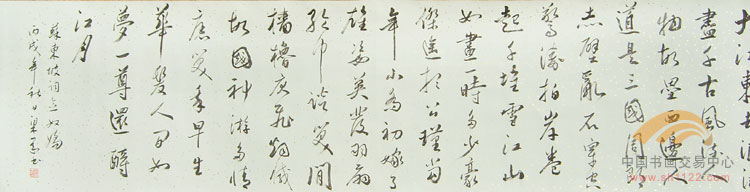 大江東去浪
盡千古風流人
物故壘西邊人
道是三國周郎
赤壁亂石穿空
驚濤拍岸卷
起千堆雪江山
如畫一時多少豪
傑遙想公瑾當
年小喬初嫁了
雄姿英發羽扇
綸巾談笑間
檣櫓灰飛煙滅
故國神游多情
應笑我早生
華髮人間如
夢一尊還酹
江月
蘇東坡詞念奴嬌
丙戌年秋日梁書
中国书画交易中心
www.sh1122.com